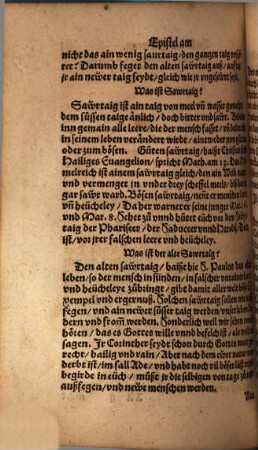 Epistel am
nicht das ain wenig saurtaig / den gantzen taig
Darumb feget den alten sawrtaig auß / auff das
jr ain newer taig seydt / gleich wie jr vngeseurt seyt.
Was ist Sawrtaig?
Sawrtaig ist ain taig von meel vnd wasser gemacht
dem süssen taige änlich / doch bitter vnd saur.
inn gemain alle leere / die der mensch fasset /
in seinem leben verändere wirdt / aintweders zum
oder zum bösen. Guten sawrtaig / haißt Christus
Hailiges Euangelion / spricht Math. am 13. Das
melreich ist ainem sawrtaig gleich / den ain Weib nam
vnd vermenget in vnder drey scheffel meels / biß
gar sawr ward. Bösen sawrtaig / nent er menschen
vnd heücheley / Da her warneter seine junger Mat.
vnd Mar. 8. Sehet zů vnnd hütet eüch vor der Sawr
taig der Phariseer / der Saduceer vnnd Herodis / Das
ist / vor jrer falschen leere vnd heücheley.
Was ist der alte Sawrtaig?
Den alten sawrtaig / haißt hie S. Paulus das alte
leben / so der mensch in sünden / in falscher
vnd heücheleye zübringt / gibt damit aller welt
exempel vnd ergernuß. Solchen sawrtaig sollen
fegen / vnd ain newer süsser taig werden /
bern vnd fromm werden. Sonderlich weil wir
hören / das es Gottes will vnnd befelch ist /
sagen. Jr Corinther seydt schon durch Gottes
recht / hailig vnd rain / Aber nach dem ewer
derbt ist / im fall Ade / vnd habt noch vil böser
begirde in eüch / müßt jr die selbigen von tage zů tage
außfegen / vnd newe menschen werden.